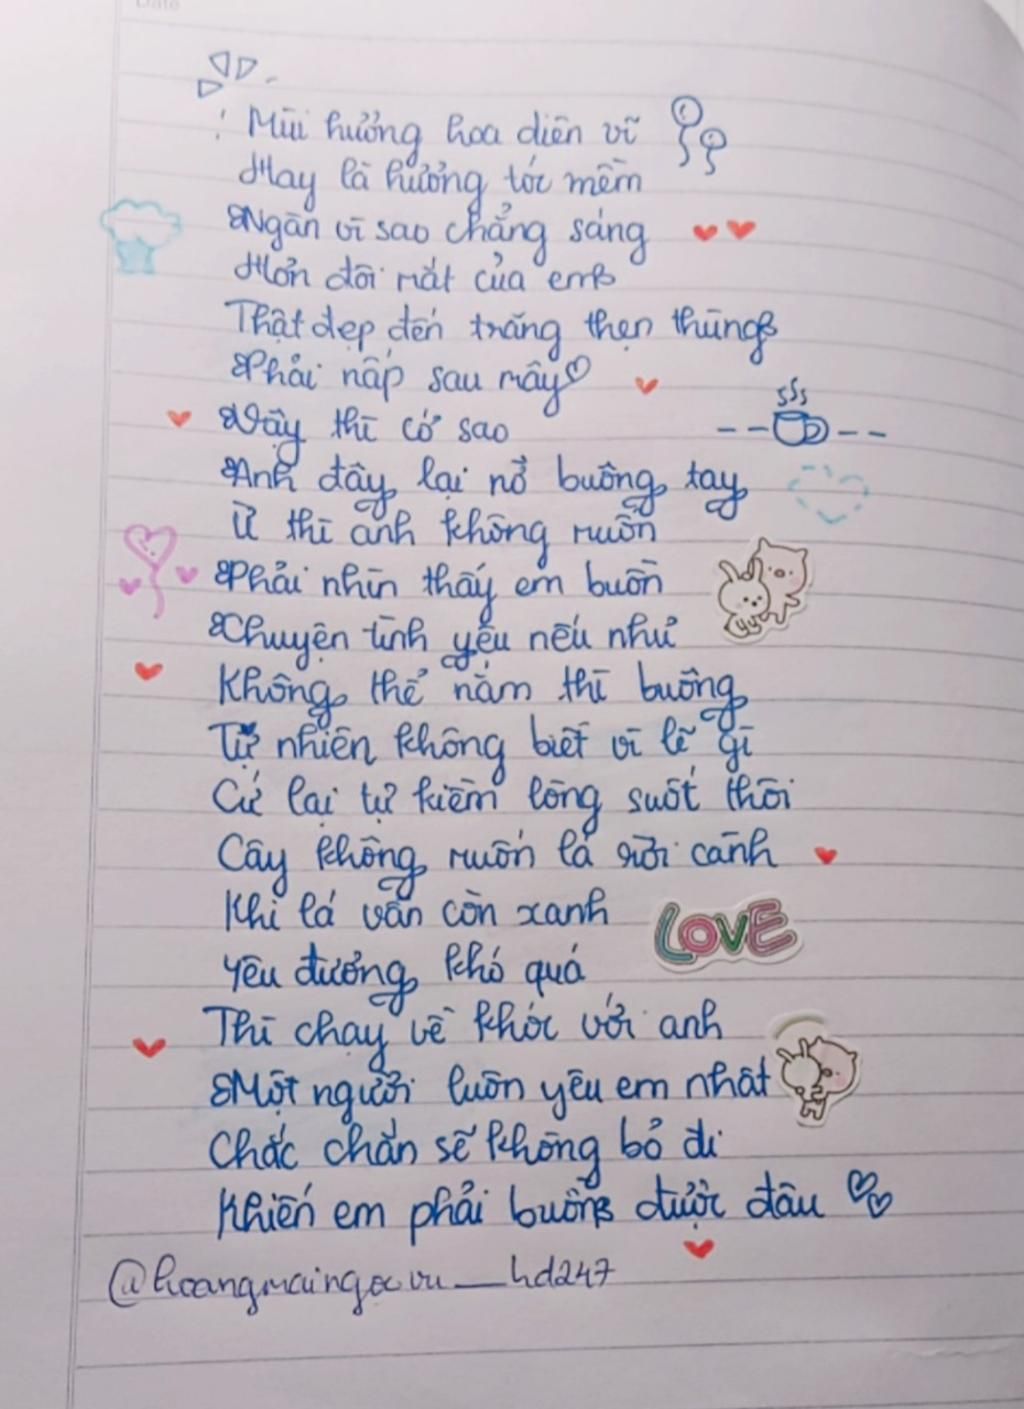 Date
Mùi hương hoa diên vĩ
Hay là hương tóc mềm
Ngàn vì sao chẳng sáng
Hơn đôi mắt của em
Thật đẹp đến trăng thẹn thùng
Phải nấp sau mây
Vậy thì cớ sao
Anh đây lại nỡ buông tay
Ừ thì anh không muốn
Phải nhìn thấy em buồn
Chuyện tình yêu nếu như
Không thể nắm thì buông
Tự nhiên không biết vì lẽ gì
Cứ lại tự kiềm lòng suốt thôi
Cây không muốn lá rời cành
Khi lá vẫn còn xanh
Yêu đương khó quá
LOVE
Thì chạy về khóc với anh
Một người luôn yêu em nhất
Chắc chắn sẽ không bỏ đi
Khiến em phải buồn được đâu
@hoangmaingocvu__hd247